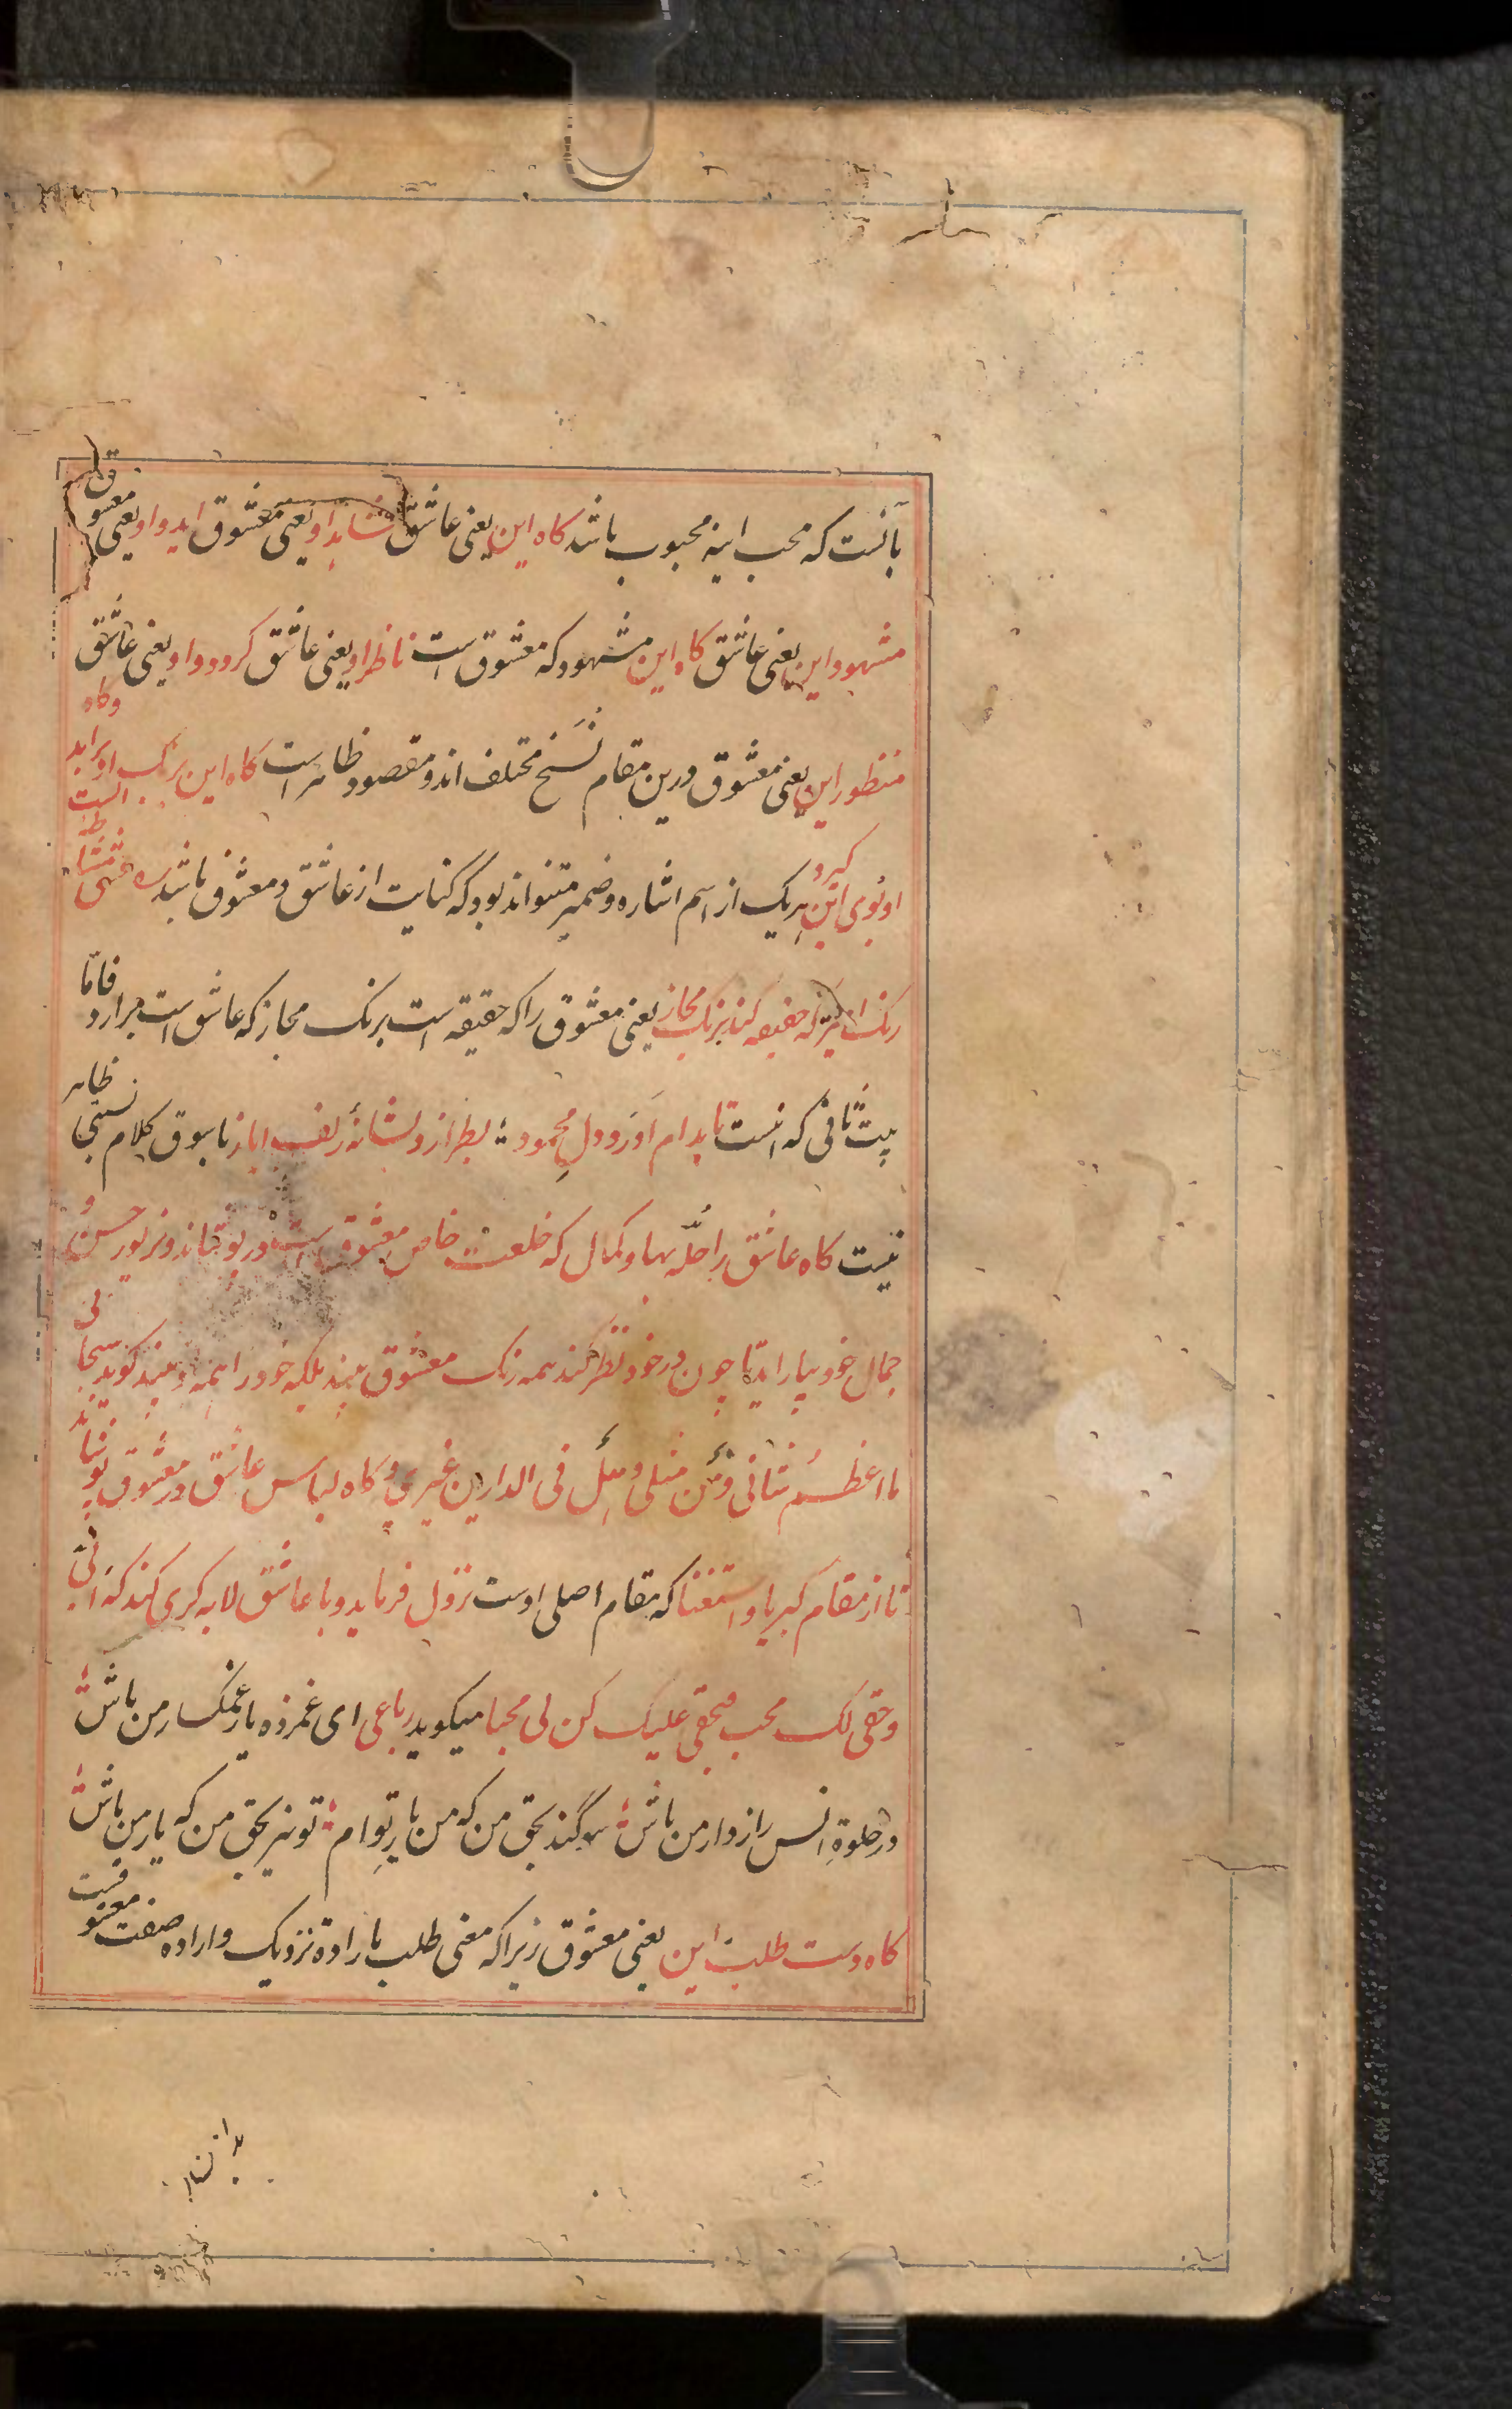 بآنست که محب اینه محبوب باشد کاه این یعنی عاشق شاهد او یعنی معشوق اید و او یعنی معشوق
مشهود این یعنی عاشق کاه این مشهود که معشوق است ناظر او یعنی عاشق کردد و او یعنی عاشق
منظور این یعنی معشوق درین مقام نسخ مختلف اند و مقصود ظاهر است کاه این برنک او براید وکاه
او بوی این کیرد هریک از اسم اشاره و ضمیر متنواند بود که کنایت از عاشق و معشوق باشد عشق مشاطهٔ ایست
رنک امیز که حقیقه کند برنک مجاز یعنی معشوق را که حقیقه است برنک مجاز که عاشق است برارد فاما
بیت ثانی که اینست تا بدام اورد دل محمود بطرازد بشانهٔ زلف ایاز بسوق کلام نسبتی ظاهر
نیست کاه عاشق را حلّه بها و کمال که خلعت خاص معشوق است درپوشاند و بزیور حسن و
جمال خود بیاراید تا چون در خود نظر کند همه رنک معشوق بیند بلکه خود را همه او بیند کوید سبحانی
ما اعظم شانی و من مثلی و هل فی الدارین غیری و کاه لباس عاشق در معشوق پوشاند
تا از مقام کبریا و استغنا که مقام اصلی اوست نزول فرماید و با عاشق لابه کری کند که انی
وحقی لک محب فبحقی علیک کن لی محبا میکوید رباعی ای غمزده یار غمکسار من باش
در خلوة انس رازدار من باش سوکند بحق من که من یار توام تو نیز بحق من که یار من باش
کاه دست طلب این یعنی معشوق زیرا که معنی طلب بارادة نزدیک و اراده صفت معشوقست